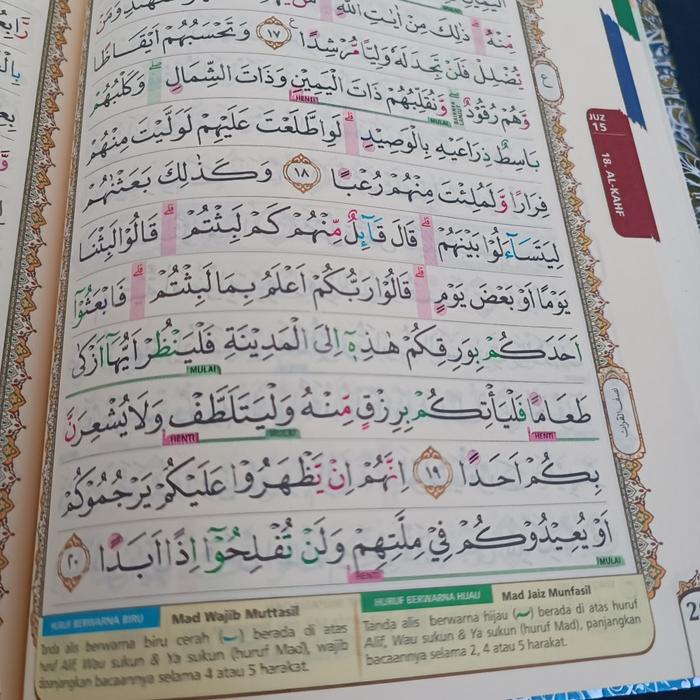 مِنْهُ ۗ ذٰلِكَ مِنْ اٰيٰتِ اللّٰهِ ۗ مَنْ
يُّضْلِلْ فَلَنْ تَجِدَ لَهٗ وَلِيًّا مُّرْشِدًا ࣖ ١٧ وَتَحْسَبُهُمْ اَيْقَاظًا
وَّهُمْ رُقُوْدٌ ۖ وَّنُقَلِّبُهُمْ ذَاتَ الْيَمِيْنِ وَذَاتَ الشِّمَالِ ۖ وَكَلْبُهُمْ
HENTI
MULAI
بَاسِطٌ ذِرَاعَيْهِ بِالْوَصِيْدِ ۗ لَوِ اطَّلَعْتَ عَلَيْهِمْ لَوَلَّيْتَ مِنْهُمْ
فِرَارًا وَّلَمُلِئْتَ مِنْهُمْ رُعْبًا ١٨ وَكَذٰلِكَ بَعَثْنٰهُمْ
لِيَتَسَاۤءَلُوْا بَيْنَهُمْ ۗ قَالَ قَاۤىِٕلٌ مِّنْهُمْ كَمْ لَبِثْتُمْ ۗ قَالُوْا لَبِثْنَا
يَوْمًا اَوْ بَعْضَ يَوْمٍ ۗ قَالُوْا رَبُّكُمْ اَعْلَمُ بِمَا لَبِثْتُمْ ۗ فَابْعَثُوْٓا
اَحَدَكُمْ بِوَرِقِكُمْ هٰذِهٖٓ اِلَى الْمَدِيْنَةِ فَلْيَنْظُرْ اَيُّهَآ اَزْكٰى
MULAI
طَعَامًا فَلْيَأْتِكُمْ بِرِزْقٍ مِّنْهُ وَلْيَتَلَطَّفْ وَلَا يُشْعِرَنَّ
HENTI
MULAI
HENTI
بِكُمْ اَحَدًا ١٩ اِنَّهُمْ اِنْ يَّظْهَرُوْا عَلَيْكُمْ يَرْجُمُوْكُمْ
اَوْ يُعِيْدُوْكُمْ فِيْ مِلَّتِهِمْ وَلَنْ تُفْلِحُوْٓا اِذًا اَبَدًا ٢٠
MULAI
HENTI
JUZ
15
18. AL-KAHF
HURUF BERWARNA HIJAU Mad Jaiz Munfasil
Tanda alis berwarna hijau (~) berada di atas huruf
Alif, Wau sukun & Ya sukun (huruf Mad), panjangkan
bacaannya selama 2, 4 atau 5 harakat.
HURUF BERWARNA BIRU Mad Wajib Muttasil
Tanda alis berwarna biru cerah (~) berada di atas
huruf Alif, Wau sukun & Ya sukun (huruf Mad), wajib
dipanjangkan bacaannya selama 4 atau 5 harakat.